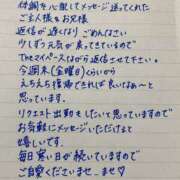 体調を心配してメッセージ送ってくれた
ご主人様もお兄様
返信が遅くなり ごめんなさい
少しずつ元気が戻ってきているので
Theマイペースながら返信させて下さい。
今週末(金曜日)くらいから
えちえち復帰できれば良いなぁーと
思っています。
リクエスト出勤もしたいと思っていますので
お気軽にメッセージいただけると
嬉しいです。
毎日寒い日が続いていますので
ご自愛くださいませ ませ♡